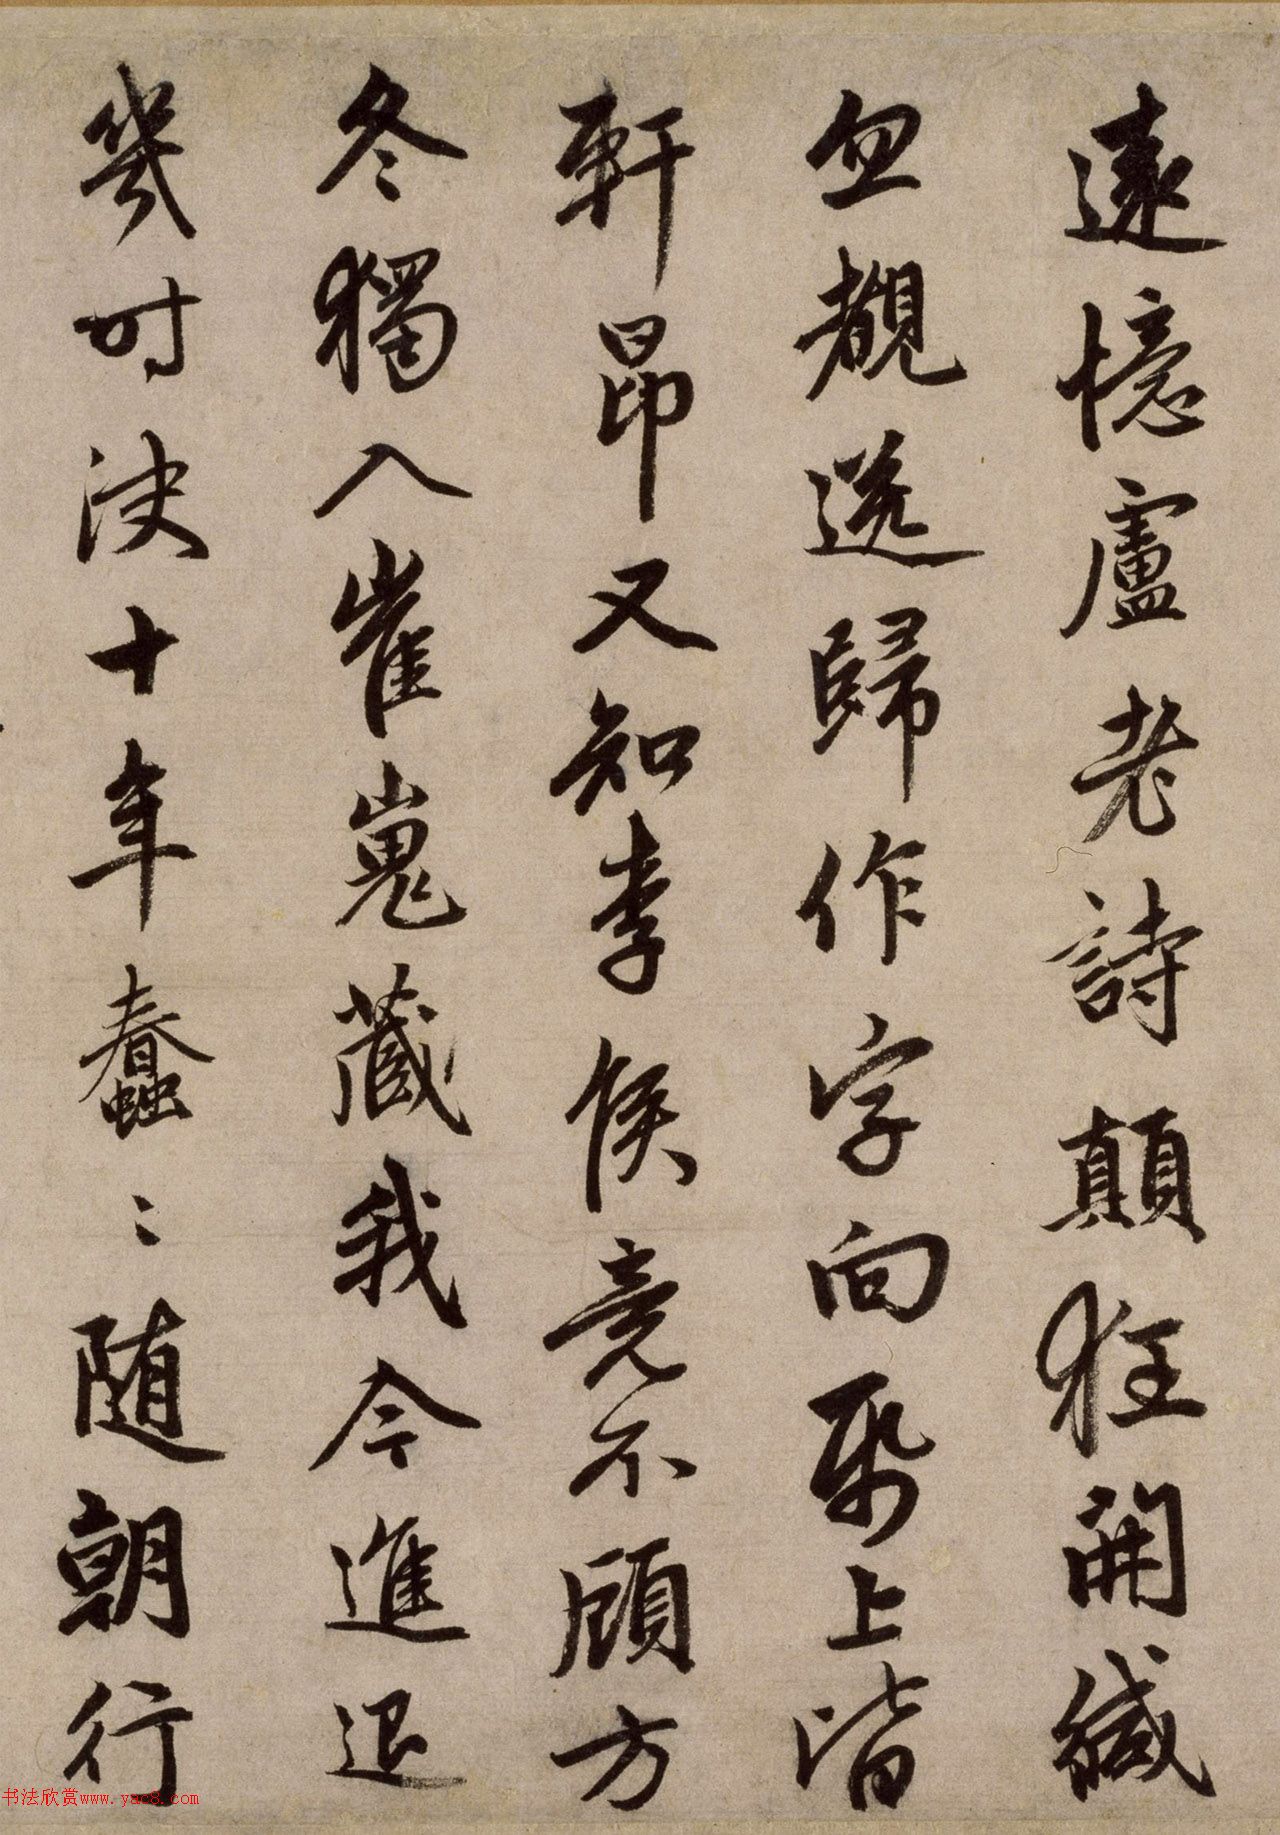 遠憶盧老詩顛狂開緘
忽覩送歸作字向帋上皆
軒昂又知李侯竟不顧方
冬獨入崔嵬藏我今進退
幾時決十年蠢〻随朝行
书法欣赏www.yac8.com